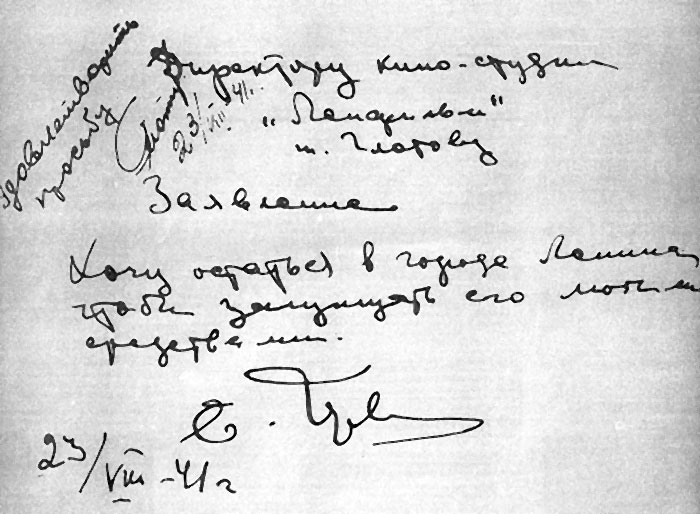 Удовлетворить
просьбу
23/VIII 41г.
Директору кино-студии
„Ленфильм"
т. Глотову
Заявление
Хочу остаться в городе Ленина,
чтобы защищать его моими
средствами.
23/VIII-41г